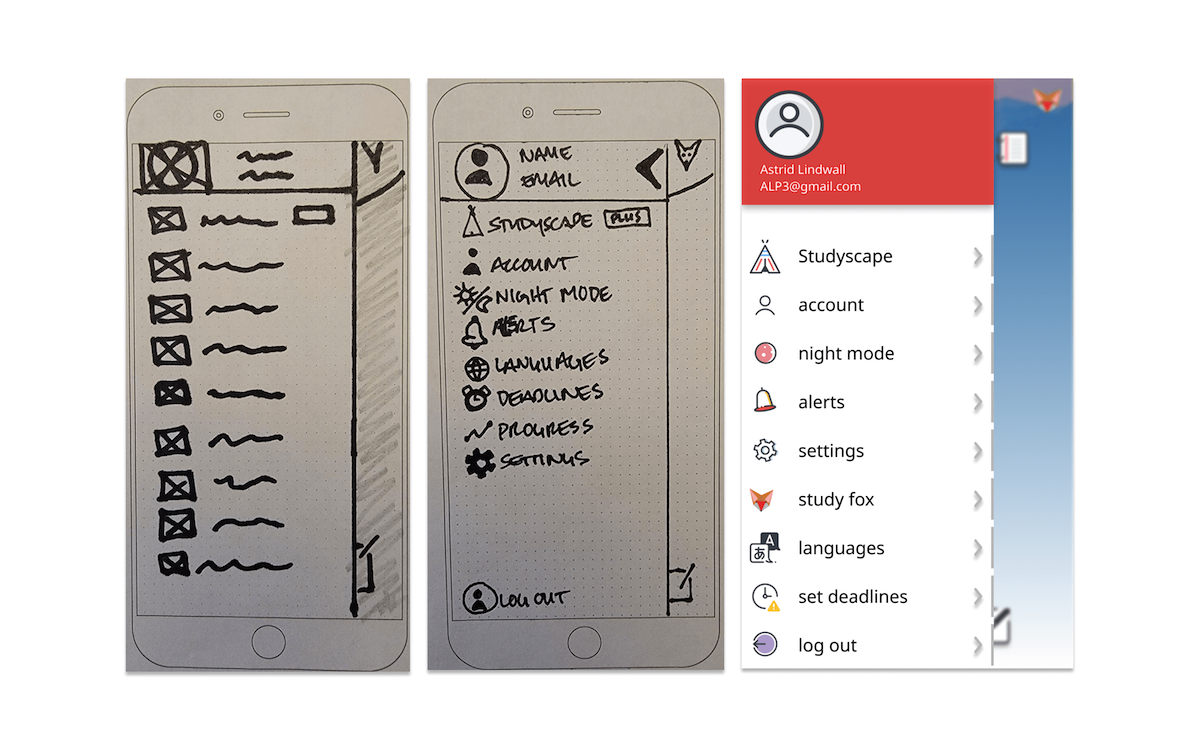 NAME
EMAIL
STUDYSCAPE PLUS
ACCOUNT
NIGHT MODE
ALERTS
LANGUAGES
DEADLINES
PROGRESS
SETTINGS
LOG OUT
Astrid Lindwall
ALP3@gmail.com
Studyscape
account
night mode
alerts
settings
study fox
A
あ
languages
set deadlines
log out